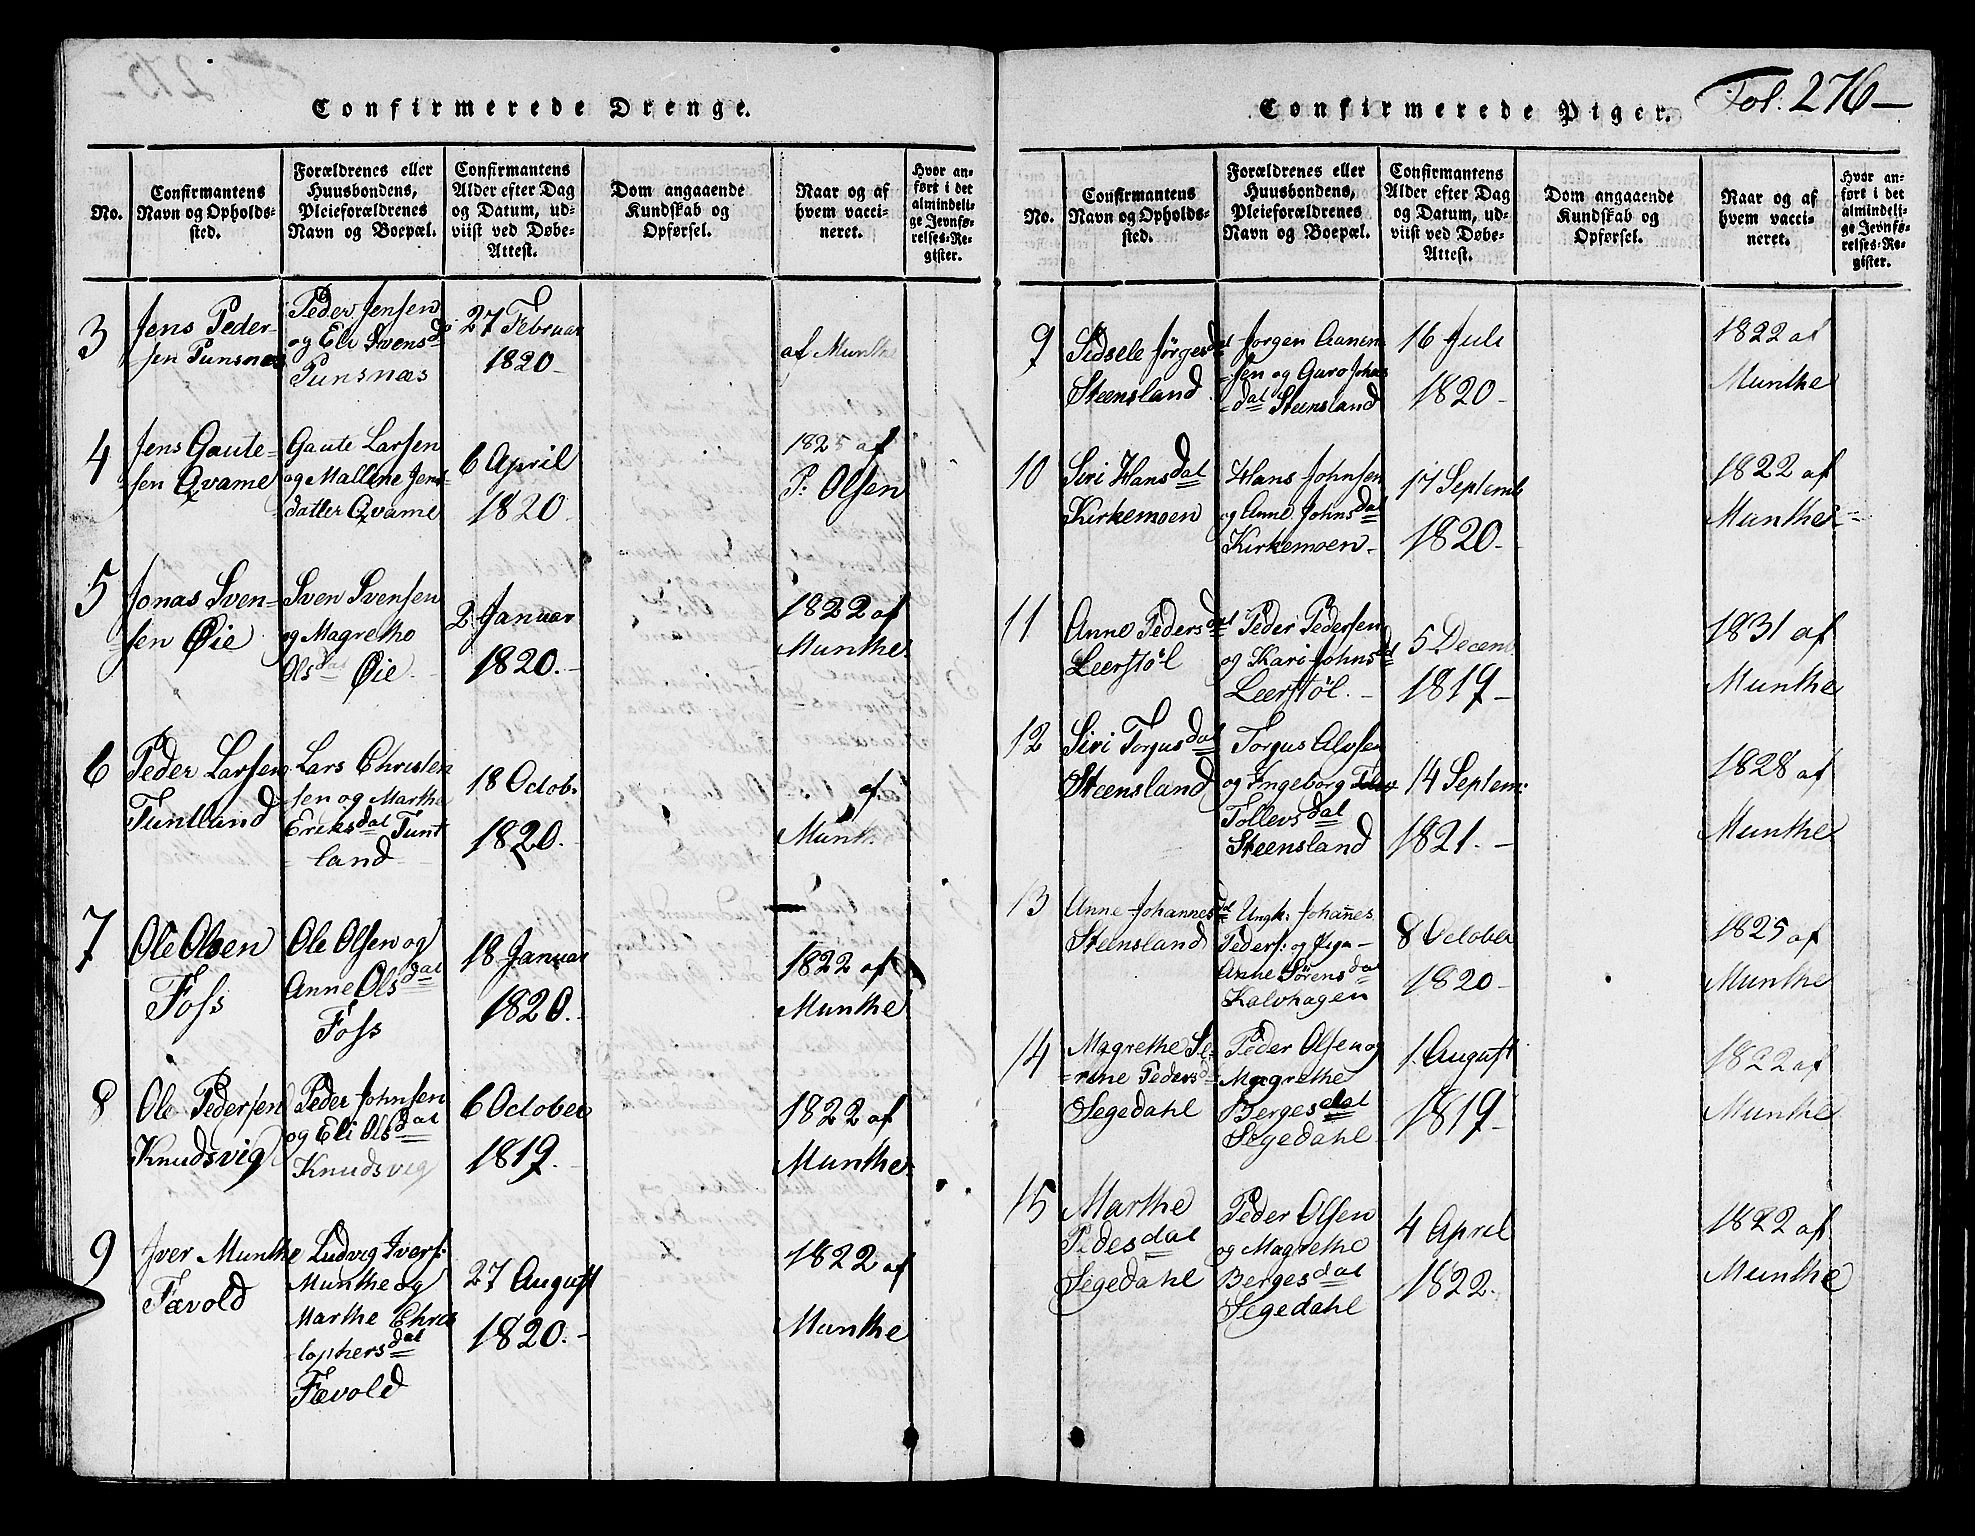 Confirmerede Drenge.
No.
Confirmantens Navn og Opholds-sted.
Forældrenes eller Huusbondens, Pleieforældrenes Navn og Boepæl.
Confirmantens Alder efter Dag og Datum, ud-viist ved Døbe-Attest.
Dom angaaende Kundskab og Opførsel.
Naar og af hvem vacci-neret.
Hvor an-ført i det almindeli-ge Jevnfø-relses-Re-gister.
3
Jens Peder-
sen Punsnæs
Peder Jensen
og Eli Svensd
Punsnæs
27 Februar
1820
af Munthe
4
Jens Gaute-
sen Qvame
Gaute Larsen
og Mallene Jens-
datter Qvame
6 April
1820
1825 af
P: Olsen
5
Jonas Sven-
sen Øie
Sven Svensen
og Magrethe
Olsdat Øie
2 Januar
1820.-
1822 af
Munthe
6
Peder Larsen
Tuntland
Lars Christen
sen og Marthe
Eriksdat Tunt
land
18 Octob:
1820.
af
Munth
7
Ole Olsen
Foss
Ole Olsen og
Anne Olsdat
Foss
18 Januar
1820.-
1822 af
Munthe
8
Ole Pedersen
Knudsvig
Peder Johnsen
og Eli Olsdat
Knudsvig
6 October
1819.-
1822 af
Munthe
9
Iver Munthe
Fævold
Ludvig Ivers:
Munthe og
Marthe Chris
tophersdat
Fævold
27 August
1820.-
1822 af
Munthe
Fol. 276-
Confirmerede Piger.
No.
Confirmantens Navn og Opholds-sted.
Forældrenes eller Huusbondens, Pleieforældrenes Navn og Boepæl.
Confirmantens Alder efter Dag og Datum, ud-viist ved Døbe-Attest.
Dom angaaende Kundskab og Opførsel.
Naar og af hvem vacci-neret.
Hvor an-ført i det almindeli-ge Jevnfø-relses-Re-gister.
9
Sidsele Jørgesdat
Steensland
Jørgen Aanen
sen og Guro Johns
dat Steensland
16 Juli
1820-
1822 af
Munthe
10
Siri Hansdat
Kirkemoen
Hans Johnsen
og Anne Johnsdat
Kirkemoen-
17 Septemb
1820-
1822 af
Munthe
11
Anne Pedersdat
Leerstøl
Peder Pedersen
og Kari Johnsd
Leerstøl.-
5 Decem
1819-
1831 af
Munthe
12
Siri Torgusdat
Steensland
Torgus Alvsen
og Ingeborg
Tollevsdat
Steensland
14 Septem:
1821.-
1828 af
Munthe
13
Anne Johannesdat
Steensland
Ungk: Johañes
Peders: og Piga-
Anne Sørensdat
Kalvhagen
8 October
1820-
1825 af
Munthe
14
Magrethe Se-
rine Pedersd
Segedahl
Peder Olsen og
Magrethe
Bergesdat
Segedahl
1 August
1819-
1822 af
Munthe
15
Marthe
Pedesdat
Segedahl
Peder Olsen
og Magrethe
Bergesdat
Segedahl
4 April
1822.
1822 af
Munthe